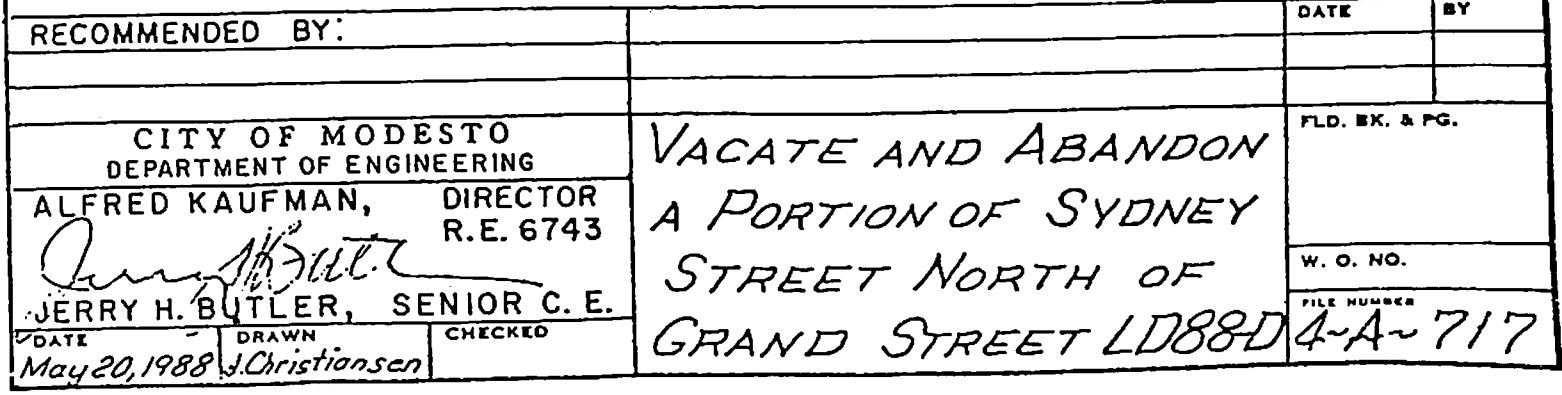 RECOMMENDED BY:
DATE BY
CITY OF MODESTO
DEPARTMENT OF ENGINEERING
ALFRED KAUFMAN, DIRECTOR
R.E. 6743
JERRY H. BUTLER, SENIOR C. E.
DATE DRAWN CHECKED
May 20, 1988 J. Christiansen
VACATE AND ABANDON
A PORTION OF SYDNEY
STREET NORTH OF
GRAND STREET LD88-D
FLD. BK. & PG.
W. O. NO.
FILE NUMBER
4-A-717